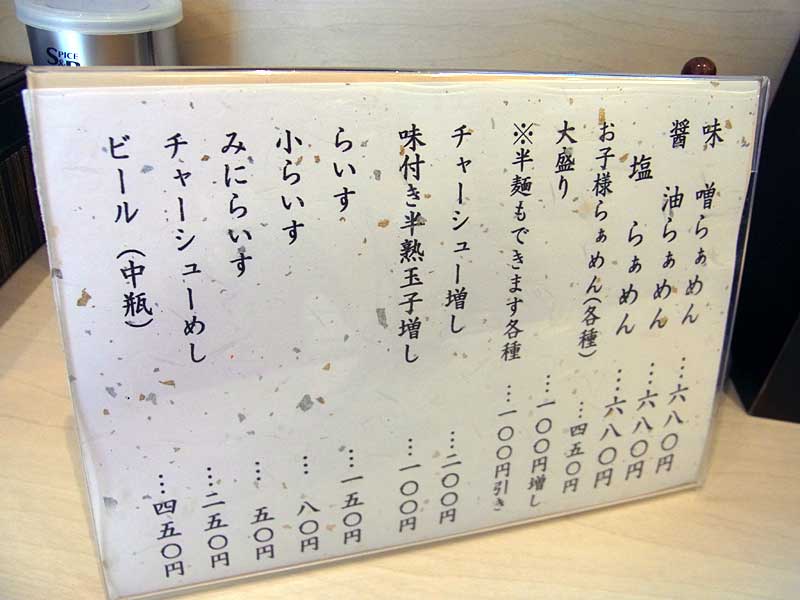 味噌らぁめん …六八〇円
醤油らぁめん …六八〇円
塩らぁめん …六八〇円
お子様らぁめん(各種) …四五〇円
大盛り …一〇〇円増し
※半麺もできます各種 …一〇〇円引き
チャーシュー増し …二〇〇円
味付き半熟玉子増し …一〇〇円
らいす …一五〇円
小らいす …八〇円
みにらいす …五〇円
チャーシューめし …二五〇円
ビール(中瓶) …四五〇円
SPICE